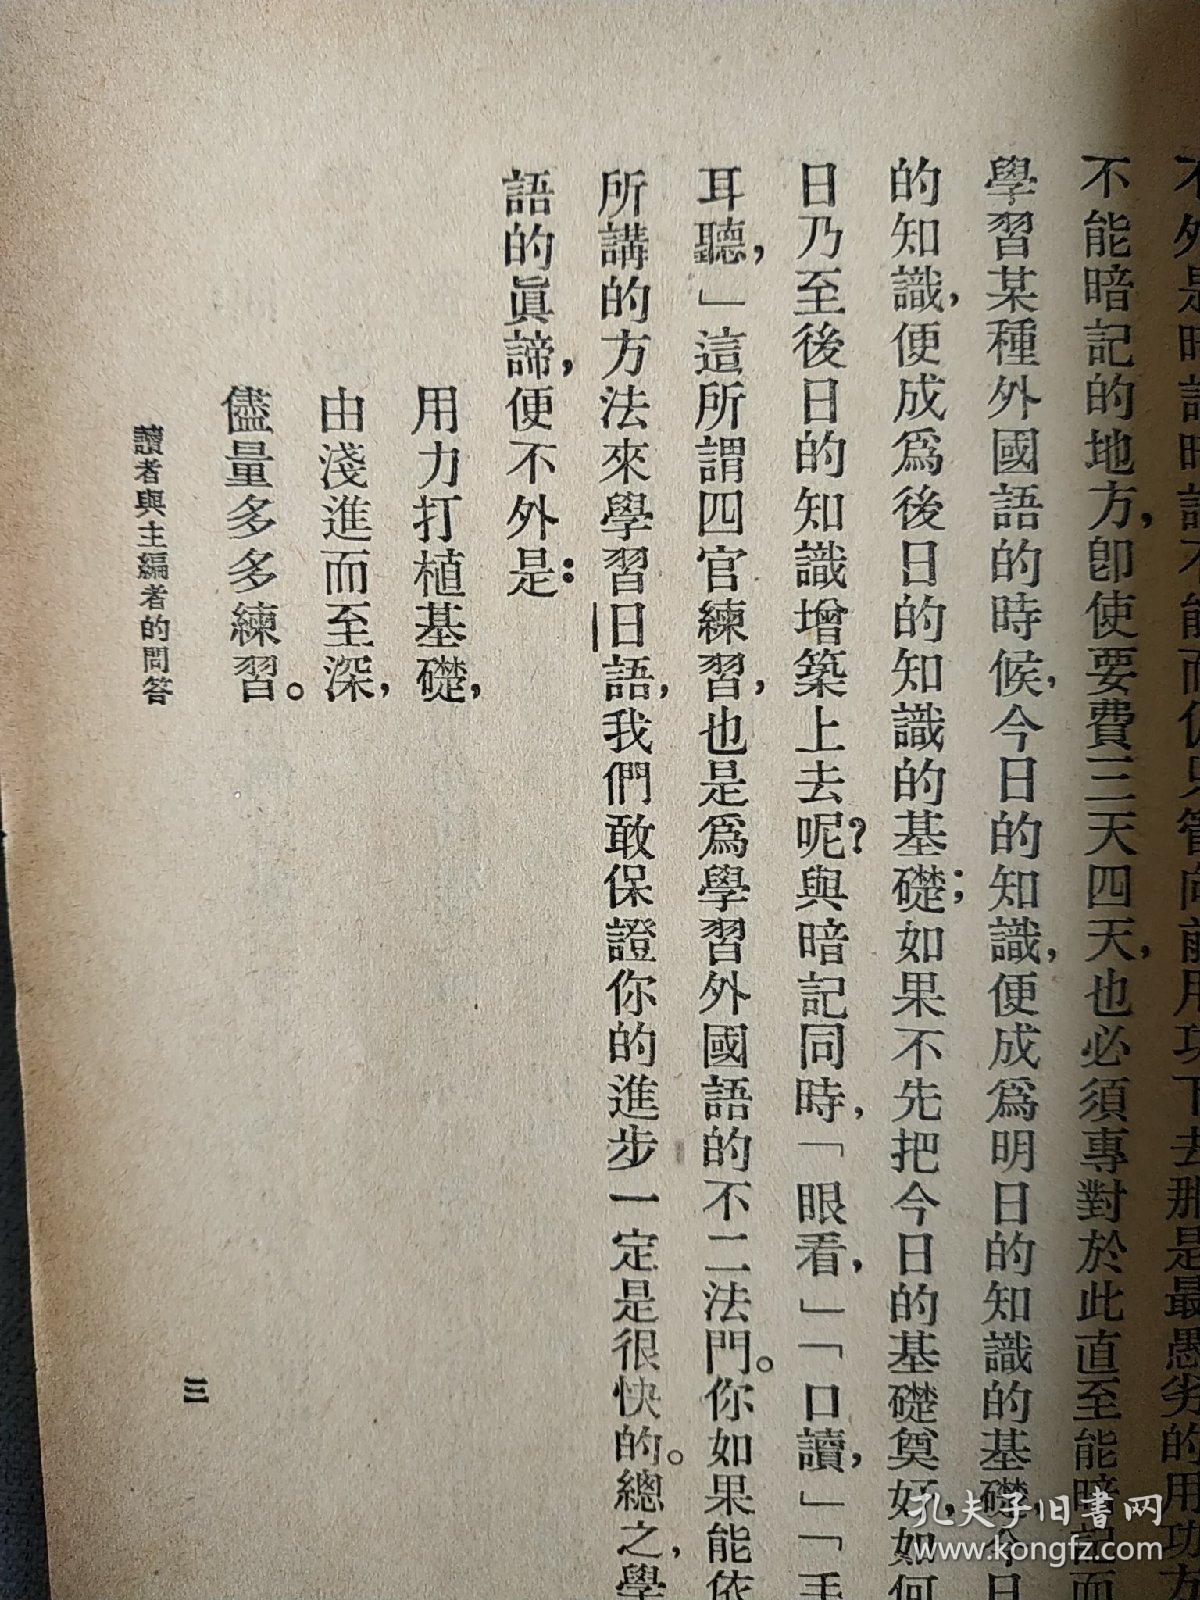 不外是暗記暗記不能而仍只管向前用功下去那是最愚劣的用功方
不能暗記的地方，卽使要費三天四天，也必須專對於此直至能暗記而
學習某種外國語的時候，今日的知識，便成爲明日的知識的基礎，今日
的知識，便成爲後日的知識的基礎；如果不先把今日的基礎奠好，如何
日乃至後日的知識增築上去呢？與暗記同時，「眼看，」「口讀，」「手
耳聽，」這所謂四官練習，也是爲學習外國語的不二法門。你如果能依
所講的方法來學習日語，我們敢保證你的進步一定是很快的。總之，學
語的眞諦，便不外是：
用力打植基礎，
由淺進而至深，
儘量多多練習。
讀者與主編者的問答
三
孔夫子旧書网
www.kongfz.com